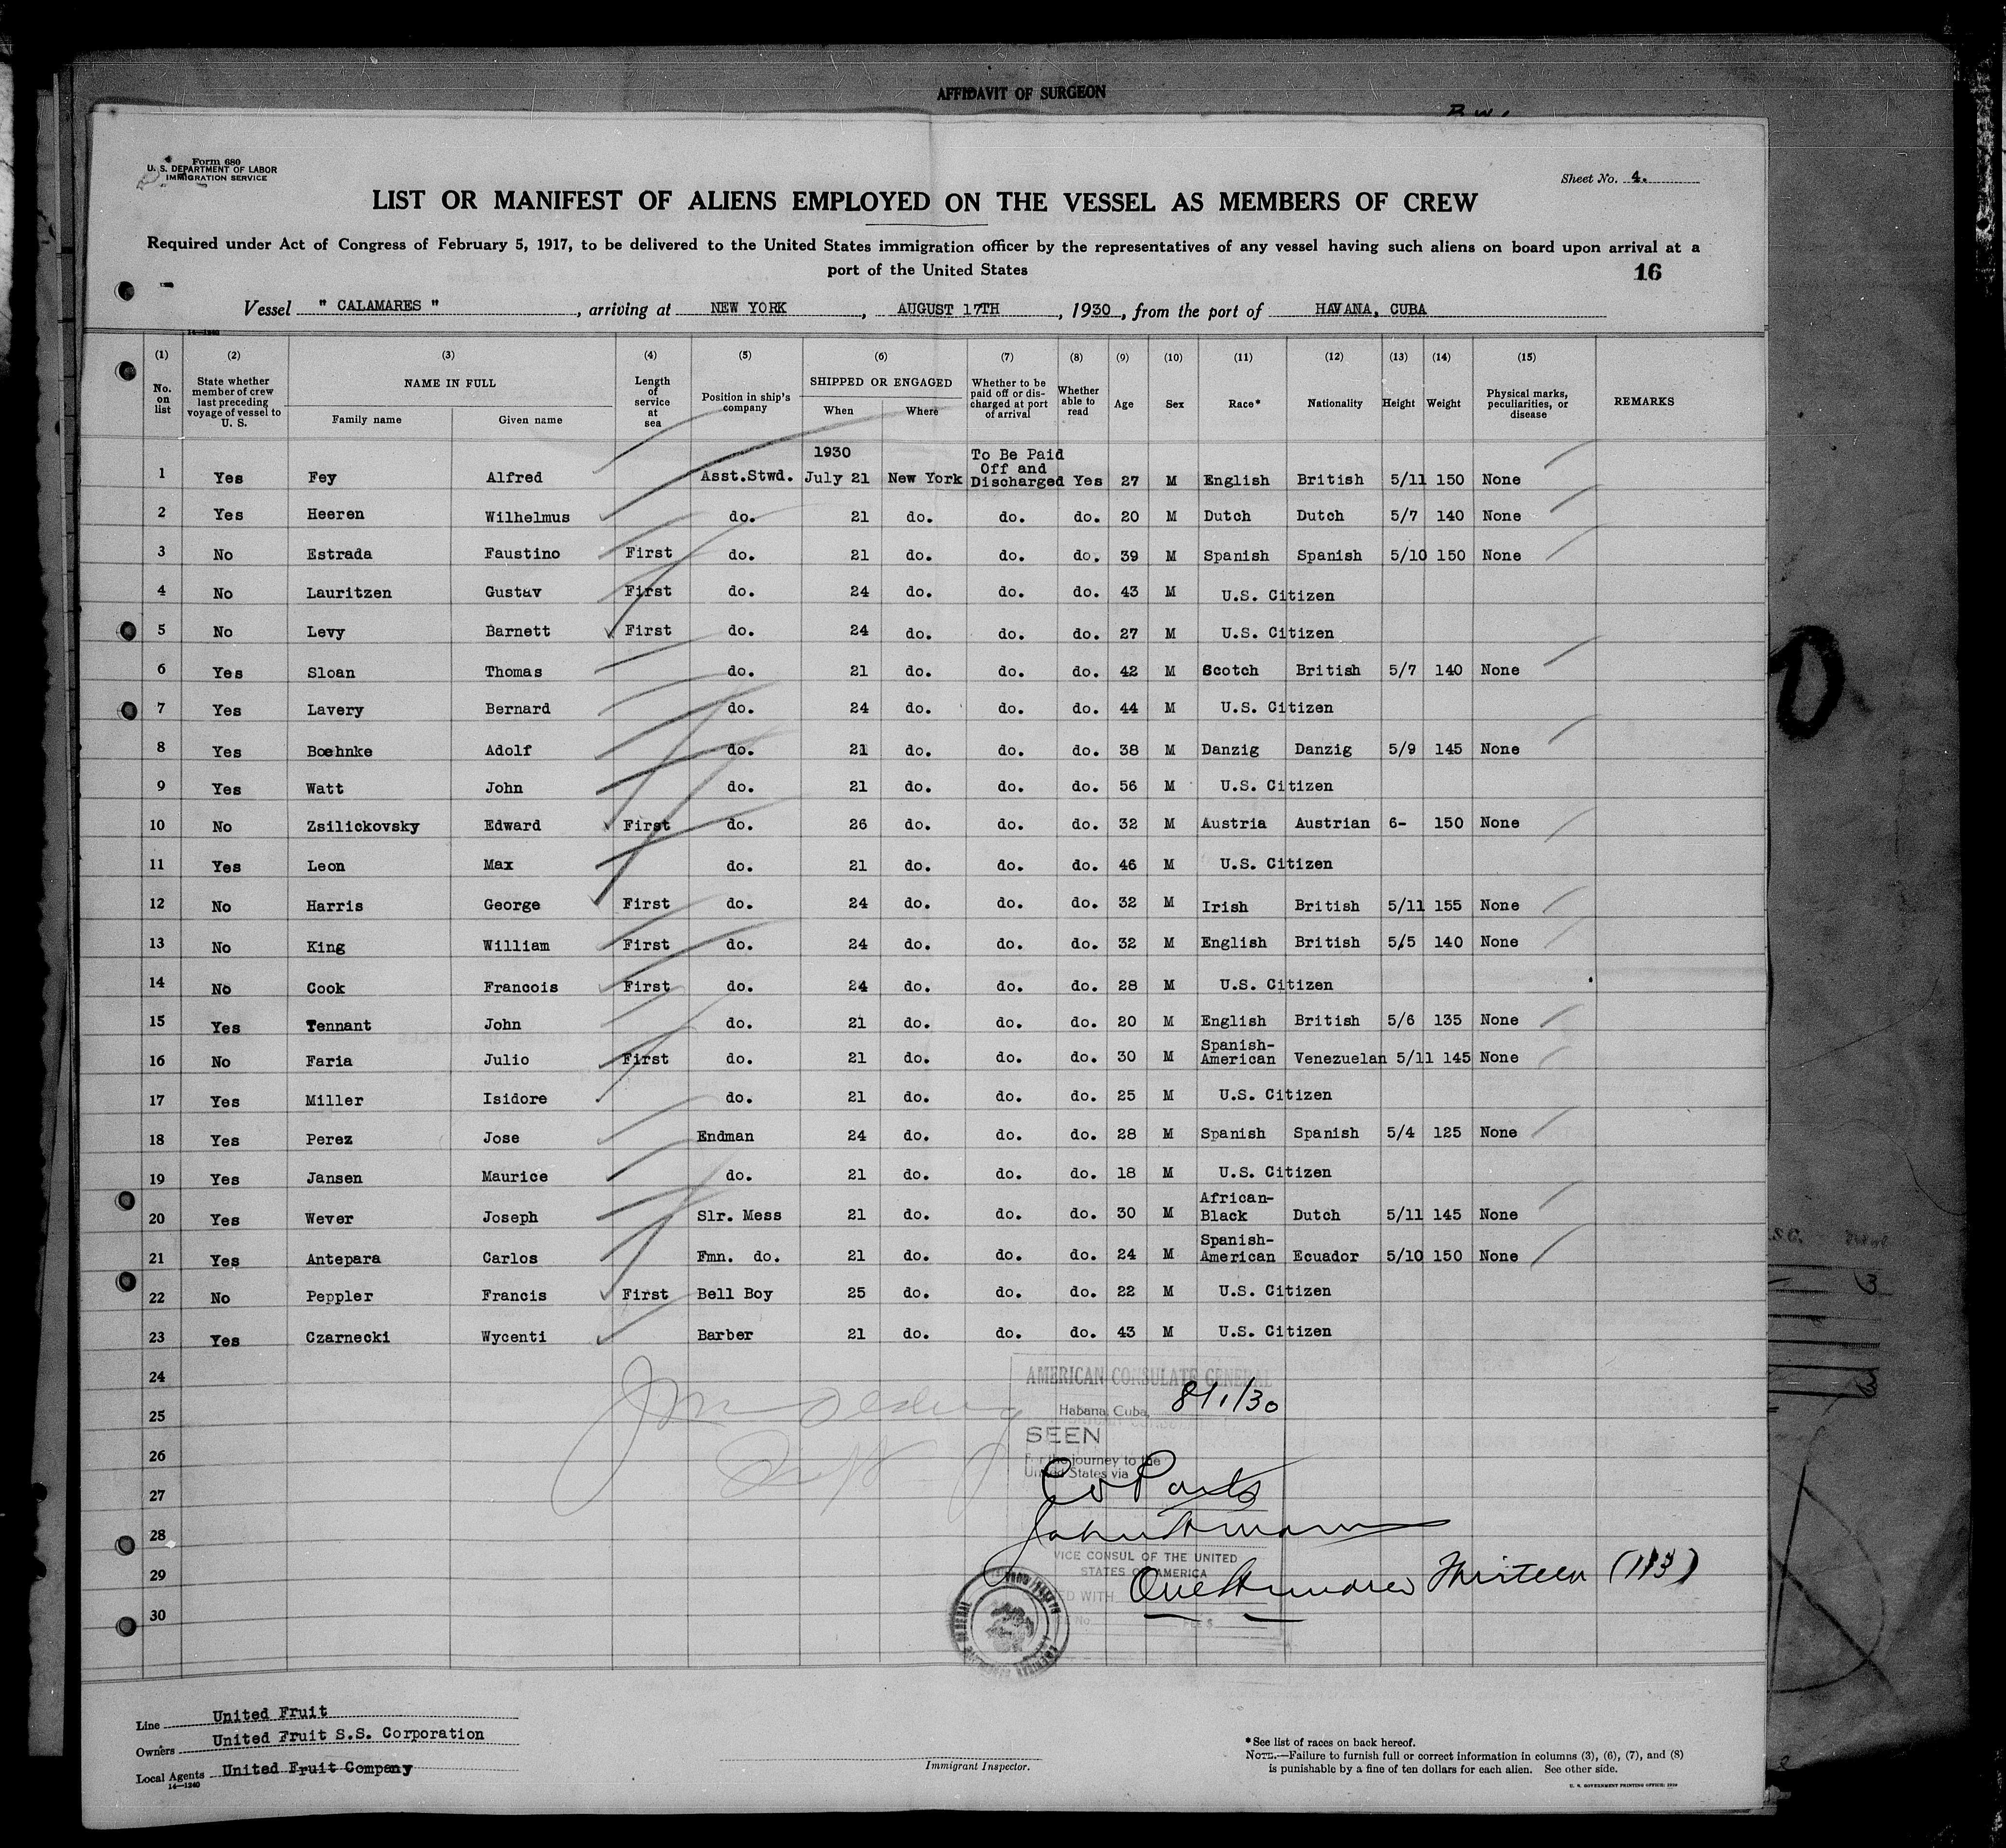 AFFIDAVIT OF SURGEON
Form 680
U. S. DEPARTMENT OF LABOR
IMMIGRATION SERVICE
Sheet No. 4.
LIST OR MANIFEST OF ALIENS EMPLOYED ON THE VESSEL AS MEMBERS OF CREW
Required under Act of Congress of February 5, 1917, to be delivered to the United States immigration officer by the representatives of any vessel having such aliens on board upon arrival at a
port of the United States
16
Vessel " CALAMARES " , arriving at NEW YORK , AUGUST 17TH , 1930 , from the port of HAVANA, CUBA
14-1240
(1) (2) (3) (4) (5) (6) (7) (8) (9) (10) (11) (12) (13) (14) (15)
No. on list State whether member of crew last preceding voyage of vessel to U. S. NAME IN FULL Family name Given name Length of service at sea Position in ship's company SHIPPED OR ENGAGED When Where Whether to be paid off or discharged at port of arrival Whether able to read Age Sex Race* Nationality Height Weight Physical marks, peculiarities, or disease REMARKS
1930 To Be Paid Off and
1 Yes Fey Alfred Asst.Stwd. July 21 New York Discharged Yes 27 M English British 5/11 150 None
2 Yes Heeren Wilhelmus do. 21 do. do. do. 20 M Dutch Dutch 5/7 140 None
3 No Estrada Faustino First do. 21 do. do. do. 39 M Spanish Spanish 5/10 150 None
4 No Lauritzen Gustav First do. 24 do. do. do. 43 M U.S. Citizen
5 No Levy Barnett First do. 24 do. do. do. 27 M U.S. Citizen
6 Yes Sloan Thomas do. 21 do. do. do. 42 M Scotch British 5/7 140 None
7 Yes Lavery Bernard do. 24 do. do. do. 44 M U.S. Citizen
8 Yes Boehnke Adolf do. 21 do. do. do. 38 M Danzig Danzig 5/9 145 None
9 Yes Watt John do. 21 do. do. do. 56 M U.S. Citizen
10 No Zsilickovsky Edward First do. 26 do. do. do. 32 M Austria Austrian 6- 150 None
11 Yes Leon Max do. 21 do. do. do. 46 M U.S. Citizen
12 No Harris George First do. 24 do. do. do. 32 M Irish British 5/11 155 None
13 No King William First do. 24 do. do. do. 32 M English British 5/5 140 None
14 No Cook Francois First do. 24 do. do. do. 28 M U.S. Citizen
15 Yes Tennant John do. 21 do. do. do. 20 M English British 5/6 135 None
16 No Faria Julio First do. 21 do. do. do. 30 M Spanish-American Venezuelan 5/11 145 None
17 Yes Miller Isidore do. 21 do. do. do. 25 M U.S. Citizen
18 Yes Perez Jose Endman 24 do. do. do. 28 M Spanish Spanish 5/4 125 None
19 Yes Jansen Maurice do. 21 do. do. do. 18 M U.S. Citizen
20 Yes Wever Joseph Slr. Mess 21 do. do. do. 30 M African-Black Dutch 5/11 145 None
21 Yes Antepara Carlos Fmn. do. 21 do. do. do. 24 M Spanish-American Ecuador 5/10 150 None
22 No Peppler Francis First Bell Boy 25 do. do. do. 22 M U.S. Citizen
23 Yes Czarnecki Wycenti Barber 21 do. do. do. 43 M U.S. Citizen
24
25
26
27
28
29
30
AMERICAN CONSULATE GENERAL
Habana, Cuba, 8/1/30
SEEN
For the journey to the
United States via
VICE CONSUL OF THE UNITED
STATES OF AMERICA
One Hundred Thirteen (113)
Line United Fruit
Owners United Fruit S.S. Corporation
Local Agents United Fruit Company
14-1240
Immigrant Inspector.
*See list of races on back hereof.
NOTE.—Failure to furnish full or correct information in columns (3), (6), (7), and (8)
is punishable by a fine of ten dollars for each alien. See other side.
U. S. GOVERNMENT PRINTING OFFICE: 1930